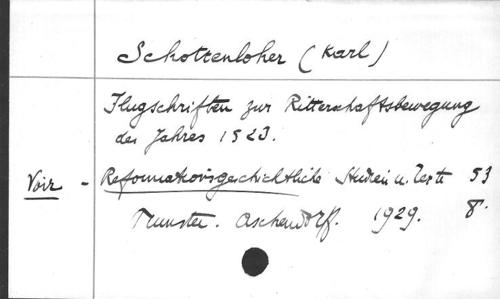 Schottenloher (Karl)
Flugschriften zur Ritterschaftsbewegung
des Jahres 1523.
Voir - Reformationsgeschichtliche Studien u. Texte 53
Munster. Aschendorff. 1929. 8°.